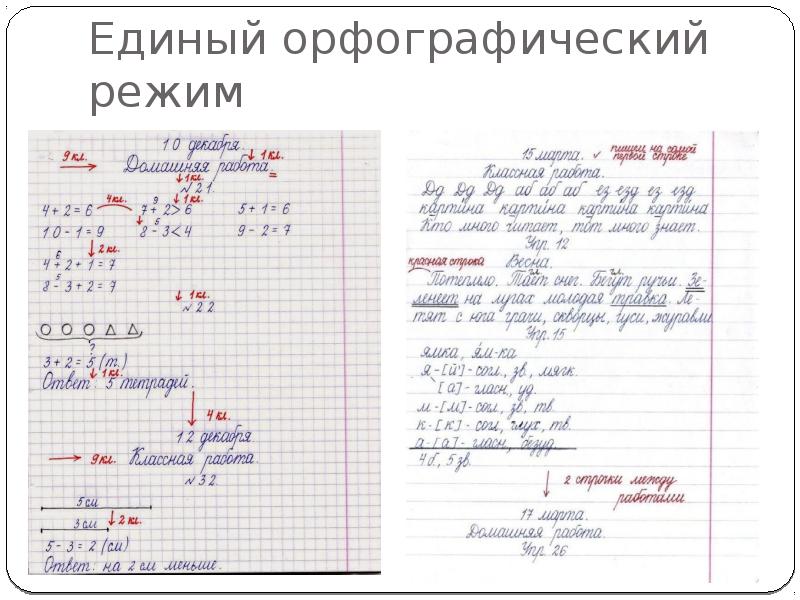 Единый орфографический
режим
10 декабря.
9 кл.
Домашняя работа.
1 кл.
1 кл.
№ 21.
1 кл.
4 кл.
9
4 + 2 = 6
7 + 2 > 6
5 + 1 = 6
5
10 - 1 = 9
8 - 3 < 4
9 - 2 = 7
2 кл.
6
4 + 2 + 1 = 7
5
8 - 3 + 2 = 7
1 кл.
№ 22.
?
3 + 2 = 5 (т.)
1 кл.
Ответ: 5 тетрадей.
4 кл.
12 декабря.
9 кл.
Классная работа.
№ 32.
5 см
3 см
2 кл.
5 - 3 = 2 (см)
Ответ: на 2 см меньше.
15 марта.
пишем на самой
первой строке
Классная работа.
Дд Дд Дд аб аб аб ез езд ез езд
картина картина картина картина
Кто много читает, тот много знает.
Упр. 12
красная строка
Весна.
гл.
гл.
Потеплло. Тает снег. Бегут ручьи. Зе-
ленеет на лугах молодая травка. Ле-
тят с юга грачи, скворцы, гуси, журавли.
Упр. 15
ямка, ям-ка
я - [й'] - согл., зв., мягк.
[а] - гласн., уд.
м - [м] - согл., зв., тв.
к - [к] - согл., глух., тв.
а - [а] - гласн., безуд.
4 б., 5 зв.
2 строчки между
работами
17 марта.
Домашняя работа.
Упр. 26